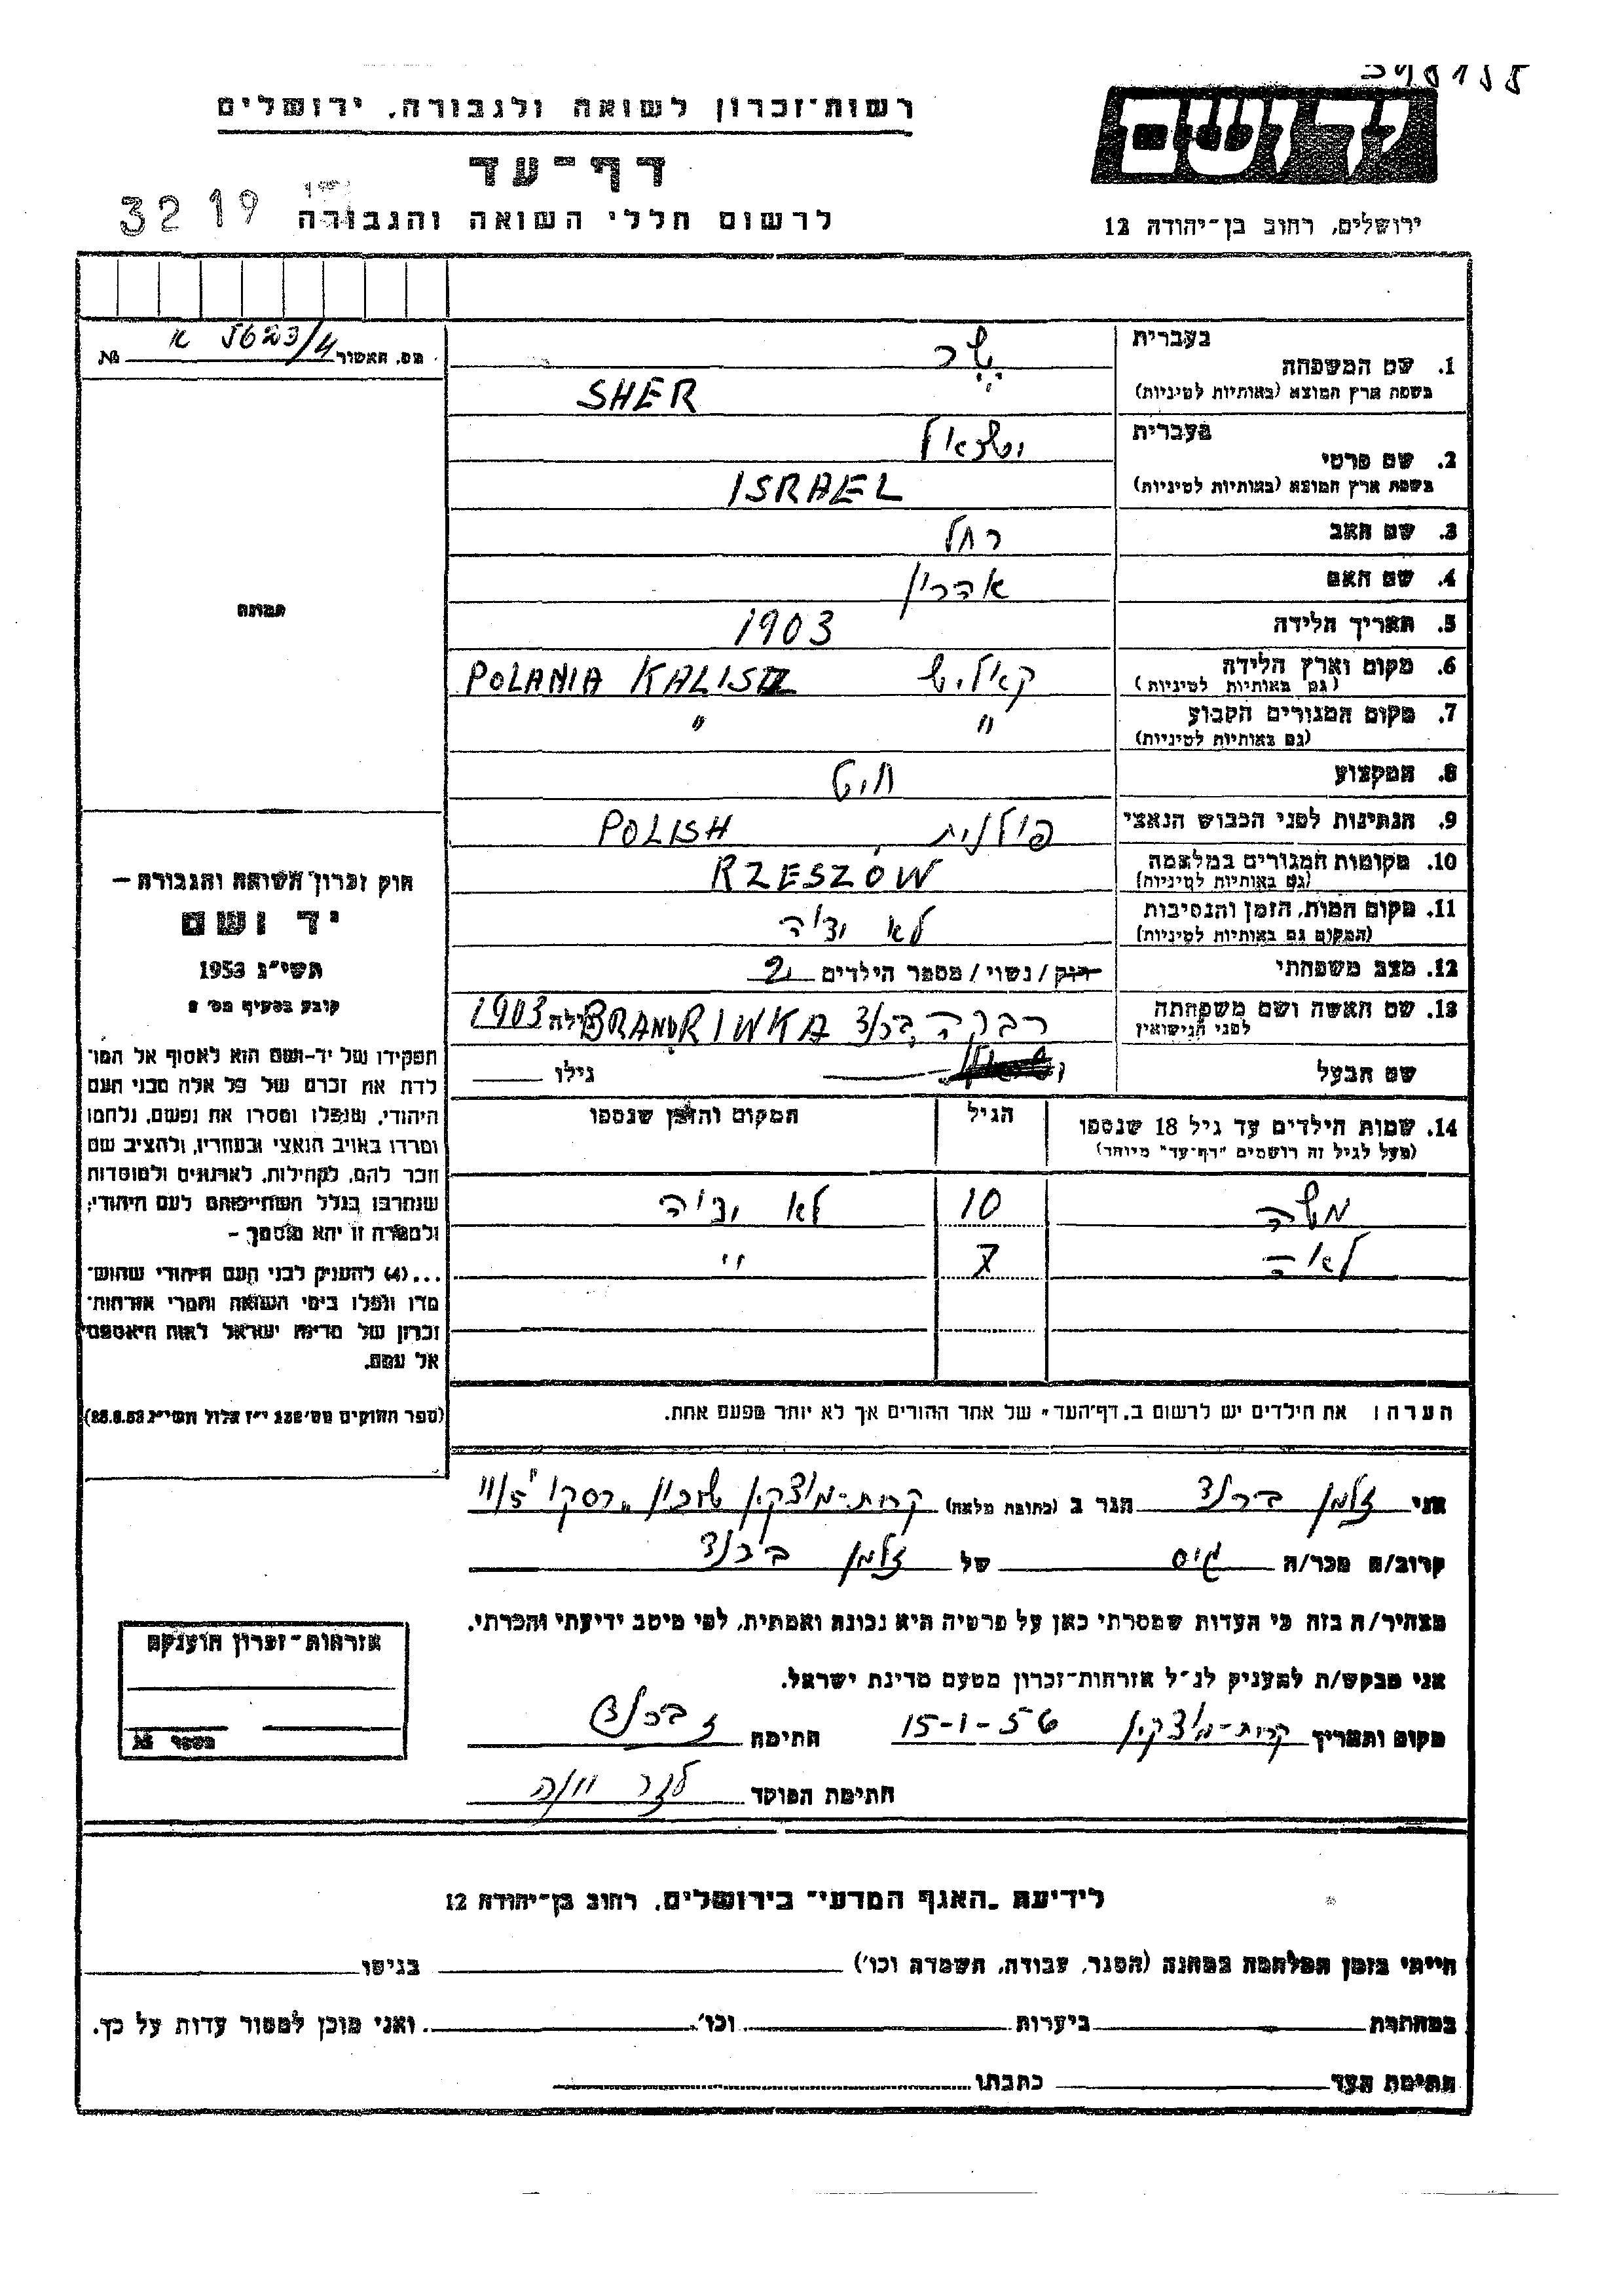 רשות־זכרון לשואה ולגבורה, ירושלים
יד ושם
דף־עד
3219
לרשום חללי השואה והגבורה
ירושלים, רחוב בן־יהודה 12
מס. האשור 5623/4 א №
בעברית שר
1. שם המשפחה
בשפת ארץ המוצא (באותיות לטיניות) SHER
בעברית ישראל
2. שם פרטי
בשפת ארץ המוצא (באותיות לטיניות) ISRAEL
3. שם האב רחל
4. שם האם אהרון
5. תאריך הלידה 1903
6. מקום וארץ הלידה קאליש POLANIA KALISZ
(גם באותיות לטיניות)
7. מקום המגורים הקבוע " "
(גם באותיות לטיניות)
8. המקצוע חיט
9. הנתינות לפני הכבוש הנאצי פולנית POLISH
10. מקומות המגורים במלחמה RZESZÓW
(גם באותיות לטיניות)
11. מקום המות, הזמן והנסיבות לא ידיה
(המקום גם באותיות לטיניות)
12. מצב משפחתי רווק / נשוי / מספר הילדים 2
13. שם האשה ושם משפחתה רבקה ברנד BRAND RIWKA 1903
לפני הנישואין
שם הבעל גילו
14. שמות הילדים עד גיל 18 שנספו הגיל המקום והזמן שנספו
(מעל לגיל זה רושמים "דף־עד" מיוחד)
משה 10 לא ידיה
לאה 7 "
הערה: את הילדים יש לרשום ב"דף־העד" של אחד ההורים אך לא יותר מפעם אחת.
תמונה
חוק זכרון השואה והגבורה –
יד ושם
תשי"ג 1953
קובע בסעיף מס' 2
תפקידו של יד-ושם הוא לאסוף אל המו־
לדת את זכרם של כל אלה מבני העם
היהודי, שנפלו ומסרו את נפשם, נלחמו
ומרדו באויב הנאצי ובעוזריו, ולהציב שם
וזכר להם, לקהילות, לארגונים ולמוסדות
שנחרבו בגלל השתייכותם לעם היהודי;
ולמטרה זו יהא מוסמך –
...(4) להעניק לבני העם היהודי שהוש־
מדו ונפלו בימי השואה והמרי אזרחות־
זכרון של מדינת ישראל לאות היאספם
אל עמם.
(ספר החוקים מס' 132 י"ז אלול תשי"ג 28.8.53)
אני זלמן ברנד הגר ב (כתובת מלאה) קרית-מוצקין שכון "רסקו" 11/5
קרוב/ה מכר/ה גיס של זלמן ברנד
מצהיר/ה בזה כי העדות שמסרתי כאן על פרטיה היא נכונה ואמתית, לפי מיטב ידיעתי והכרתי.
אני מבקש/ת להעניק לנ"ל אזרחות־זכרון מטעם מדינת ישראל.
מקום ותאריך קרית-מוצקין 15-1-56 חתימה ז. ברנד
חתימת הפוקד
אזרחות־זכרון הוענקה
מספר №
לידיעת "האגף המדעי" בירושלים, רחוב בן־יהודה 12
הייתי בזמן המלחמה במחנה (הסגר, עבודה, השמדה וכו') בגיטו
במחתרת ביערות וכו' ואני מוכן למסור עדות על כך.
חתימת העד כתבתו